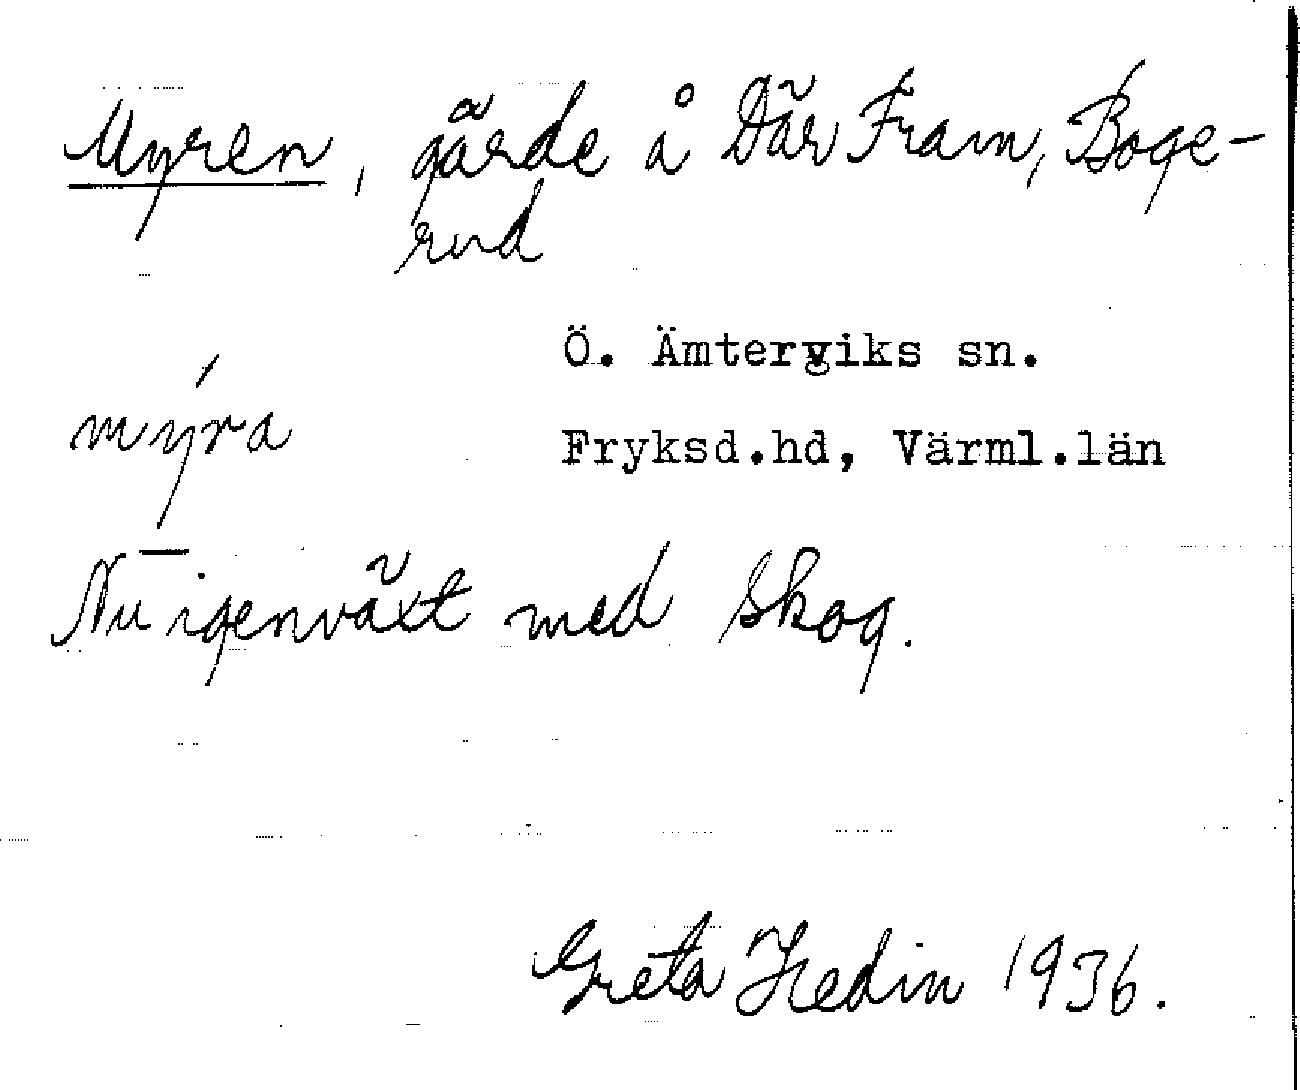 Myren, gärde å Där Fram, Boge-
rud
Ö. Ämterviks sn.
mýra
Fryksd.hd, Värml.län
Nu igenväxt med skog.
Greta Hedin 1936.